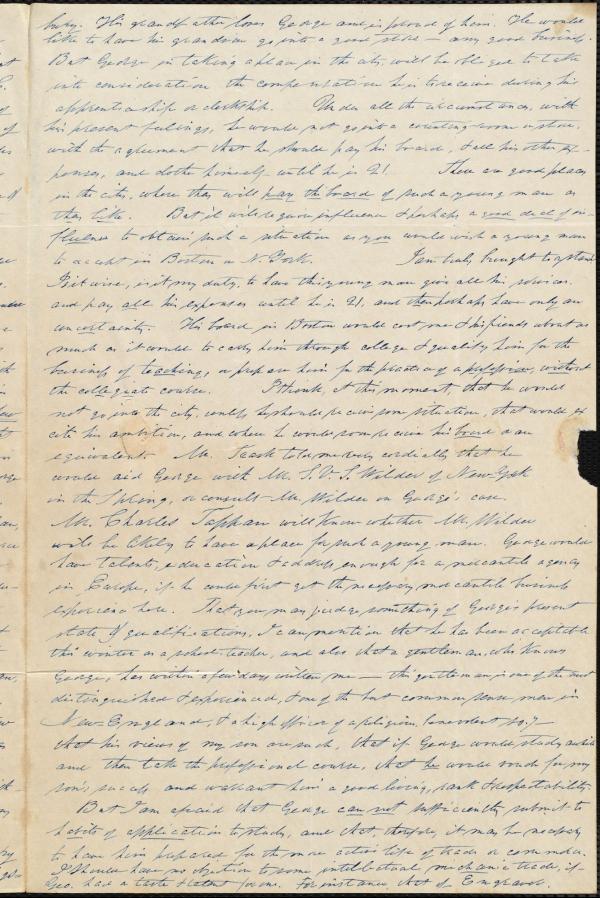 bury. His grandfather loves George and is proud of him. He would
like to have his grandson go into a good store — any good business.
But George in taking a place in the city, will be obliged to take
into consideration the compensation he is to receive during his
apprenticeship or clerkship. Under all the circumstances, with
his present feelings, he would not go into a counting room or store,
with the agreement that he should pay his board, & all his other ex-
penses, and clothe himself until he is 21. There are good places
in the city, where they will pay the board of such a young man as
they like. But it will require influence & perhaps a good deal of in-
fluence to obtain such a situation as you would wish a young man
to accept in Boston or N. York. I am truly brought to a stand
Is it wise, is it my duty, to have this young man give all his services,
and pay all his expenses until he is 21, and then perhaps have only an
uncertainty. His board in Boston would cost me & his friends about as
much as it would to carry him through college & qualify him for the
business of teaching, or prepare him for the practice of a profession, without
the collegiate course. I think, at this moment, that he would
not go into the city, unless he should receive some situation, that would ex
cite his ambition, and where he would receive his board or an
equivalent. Mr. told me very cordially that he
would aid George with Mr. S. V. S. Wilder of New-York
in the Spring, or consult Mr. Wilder on George's case.
Mr. Charles Tappan will know whether Mr. Wilder
will be likely to have a place for such a young man. George would
have talents, education & address enough for a mercantile agency
in Europe, if he could first get the necessary mercantile business
experience here. That you may judge something of George's present
state of qualifications, I can mention that he has been acceptable
this winter as a school-teacher, and also that a gentleman, who knows
George, has within a few days written me — this gentleman, is one of the most
distinguished & experienced, & one of the best common sense men in
New-England, & a high officer of a religious, benevolent
that his views of my son are such, that if George would study awhile
and then take the professional course, that he would vouch for my
son's success, and warrant him a good living, rank & respectability.
But I am afraid that George can not sufficiently submit to
habits of application to study, and that, therefore, it may be necessary
to have him prepared for the more active life of trade or commerce.
I should have no objection to some intellectual mechanic trade, if
Geo. had a taste & talent for one. For instance, that of Engraver.